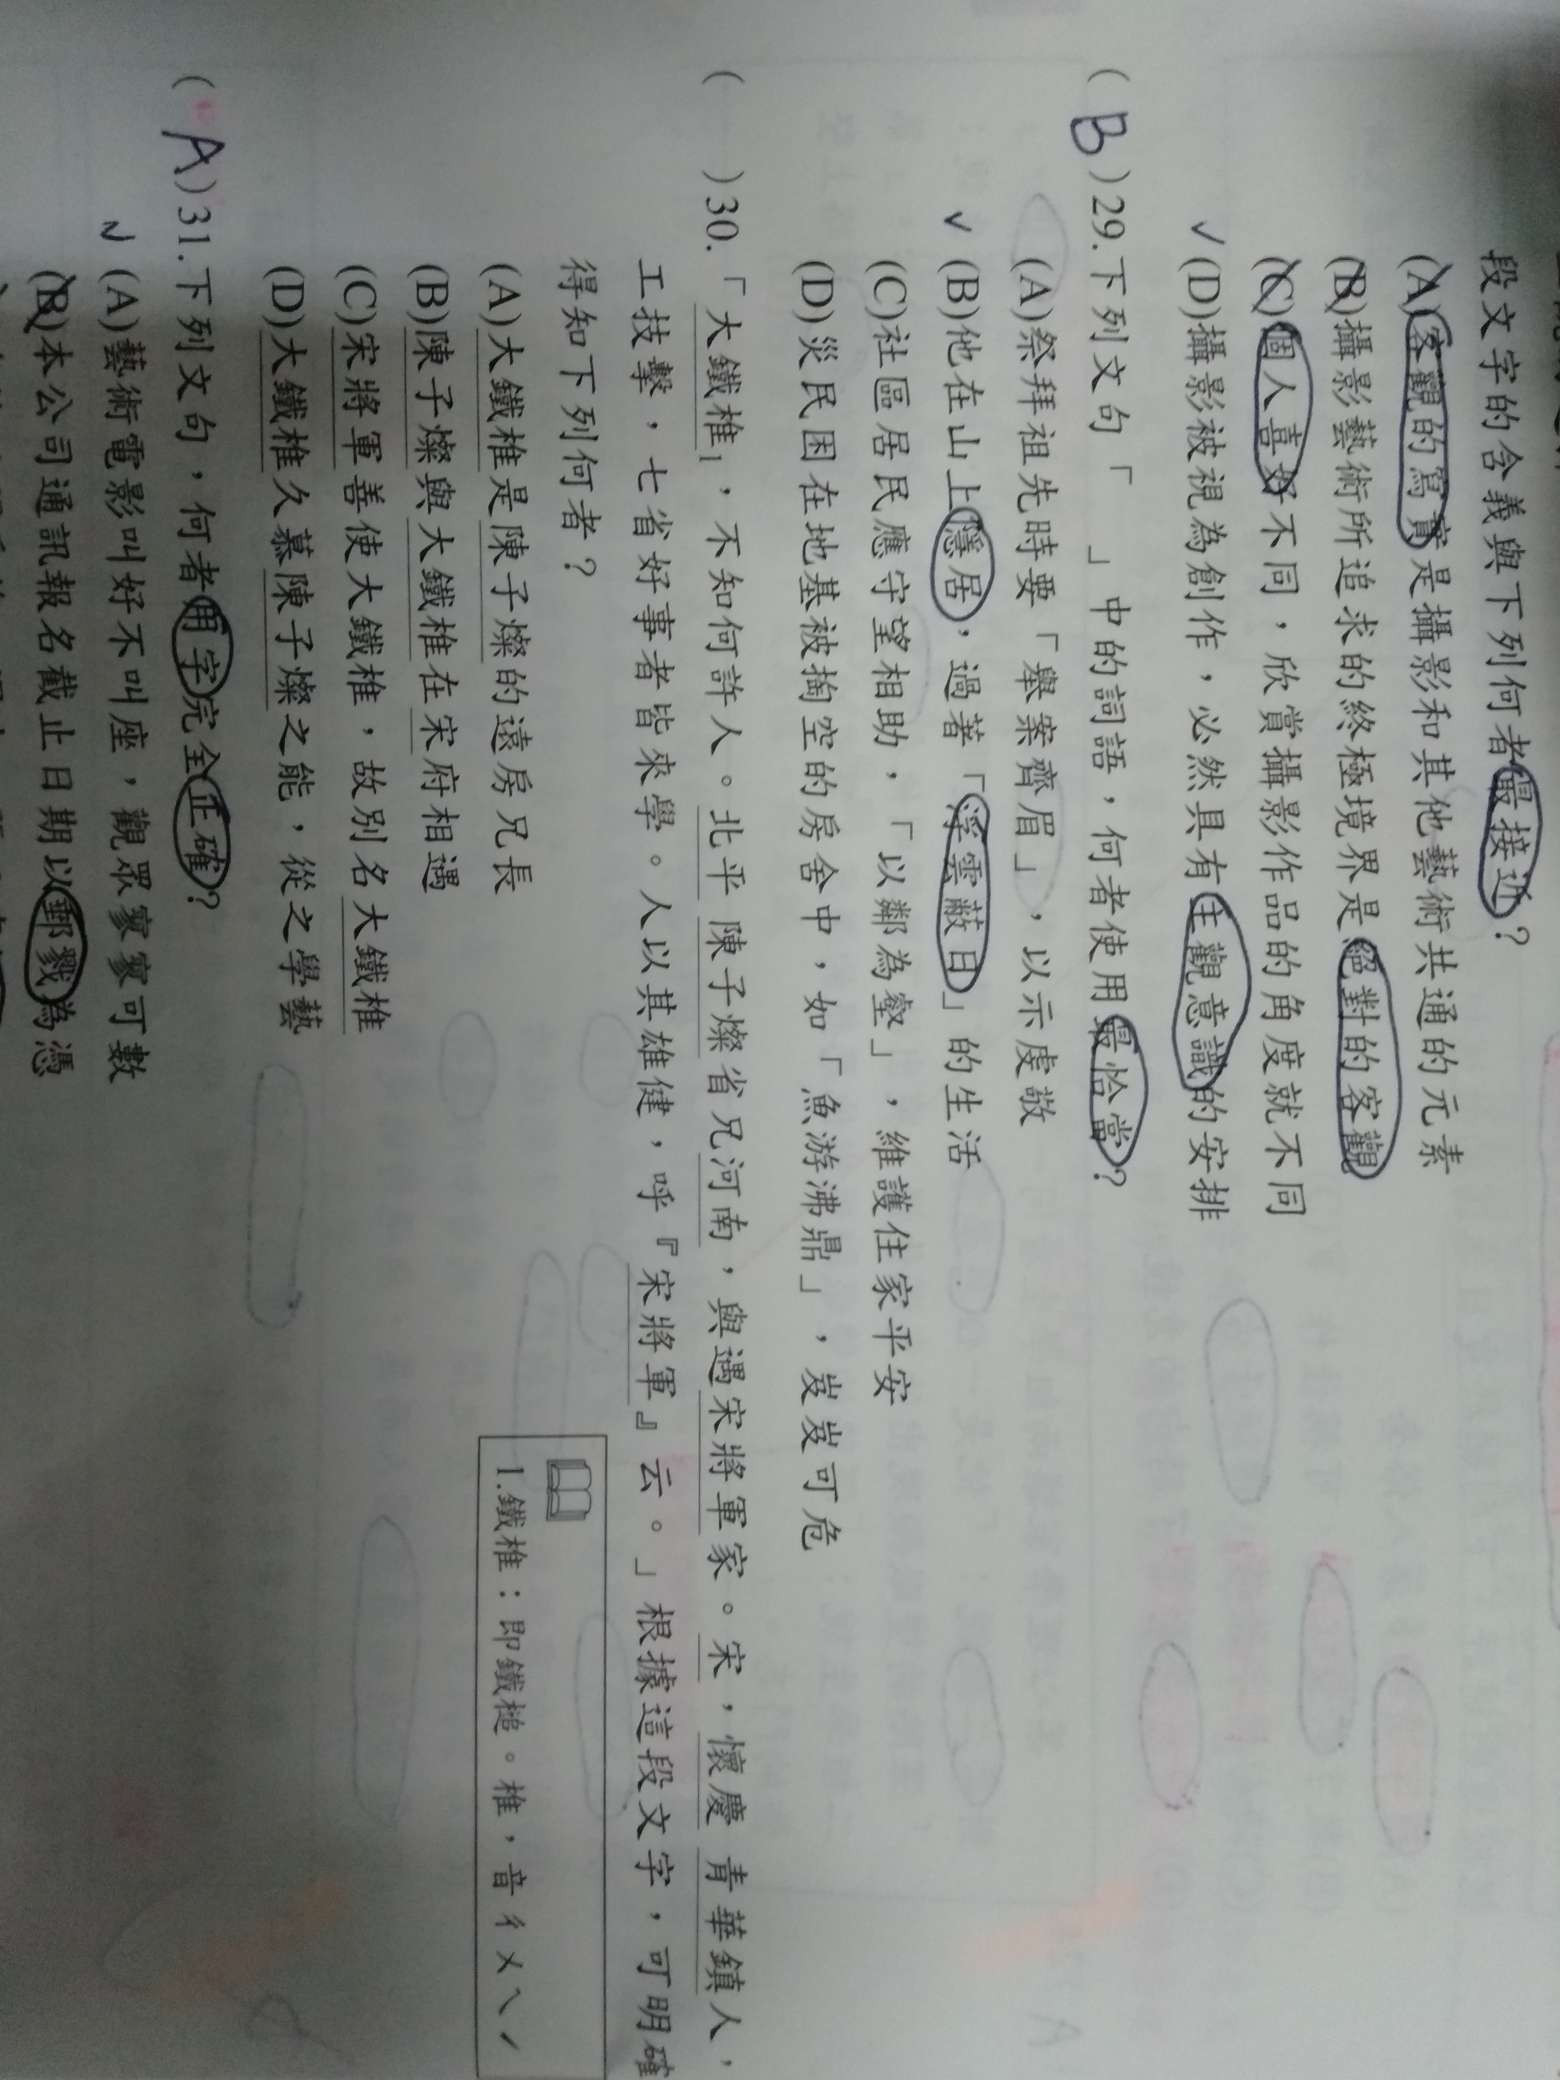 段文字的含義與下列何者最接近？
(A)客觀的寫實是攝影和其他藝術共通的元素
(B)攝影藝術所追求的終極境界是絕對的客觀
(C)個人喜好不同，欣賞攝影作品的角度就不同
✓(D)攝影被視為創作，必然具有主觀意識的安排
( B )29.下列文句「　」中的詞語，何者使用最恰當？
(A)祭拜祖先時要「舉案齊眉」，以示虔敬
✓(B)他在山上隱居，過著「浮雲蔽日」的生活
(C)社區居民應守望相助，「以鄰為壑」，維護住家平安
(D)災民困在地基被掏空的房舍中，如「魚游沸鼎」，岌岌可危
(　)30.「大鐵椎1，不知何許人。北平 陳子燦省兄河南，與遇宋將軍家。宋，懷慶 青華鎮人，
工技擊，七省好事者皆來學。人以其雄健，呼『宋將軍』云。」根據這段文字，可明確
得知下列何者？
(A)大鐵椎是陳子燦的遠房兄長
(B)陳子燦與大鐵椎在宋府相遇
(C)宋將軍善使大鐵椎，故別名大鐵椎
(D)大鐵椎久慕陳子燦之能，從之學藝
1.鐵椎：即鐵槌。椎，音ㄔㄨㄟˊ
( A )31.下列文句，何者用字完全正確？
✓(A)藝術電影叫好不叫座，觀眾寥寥可數
(B)本公司通訊報名截止日期以郵戮為憑